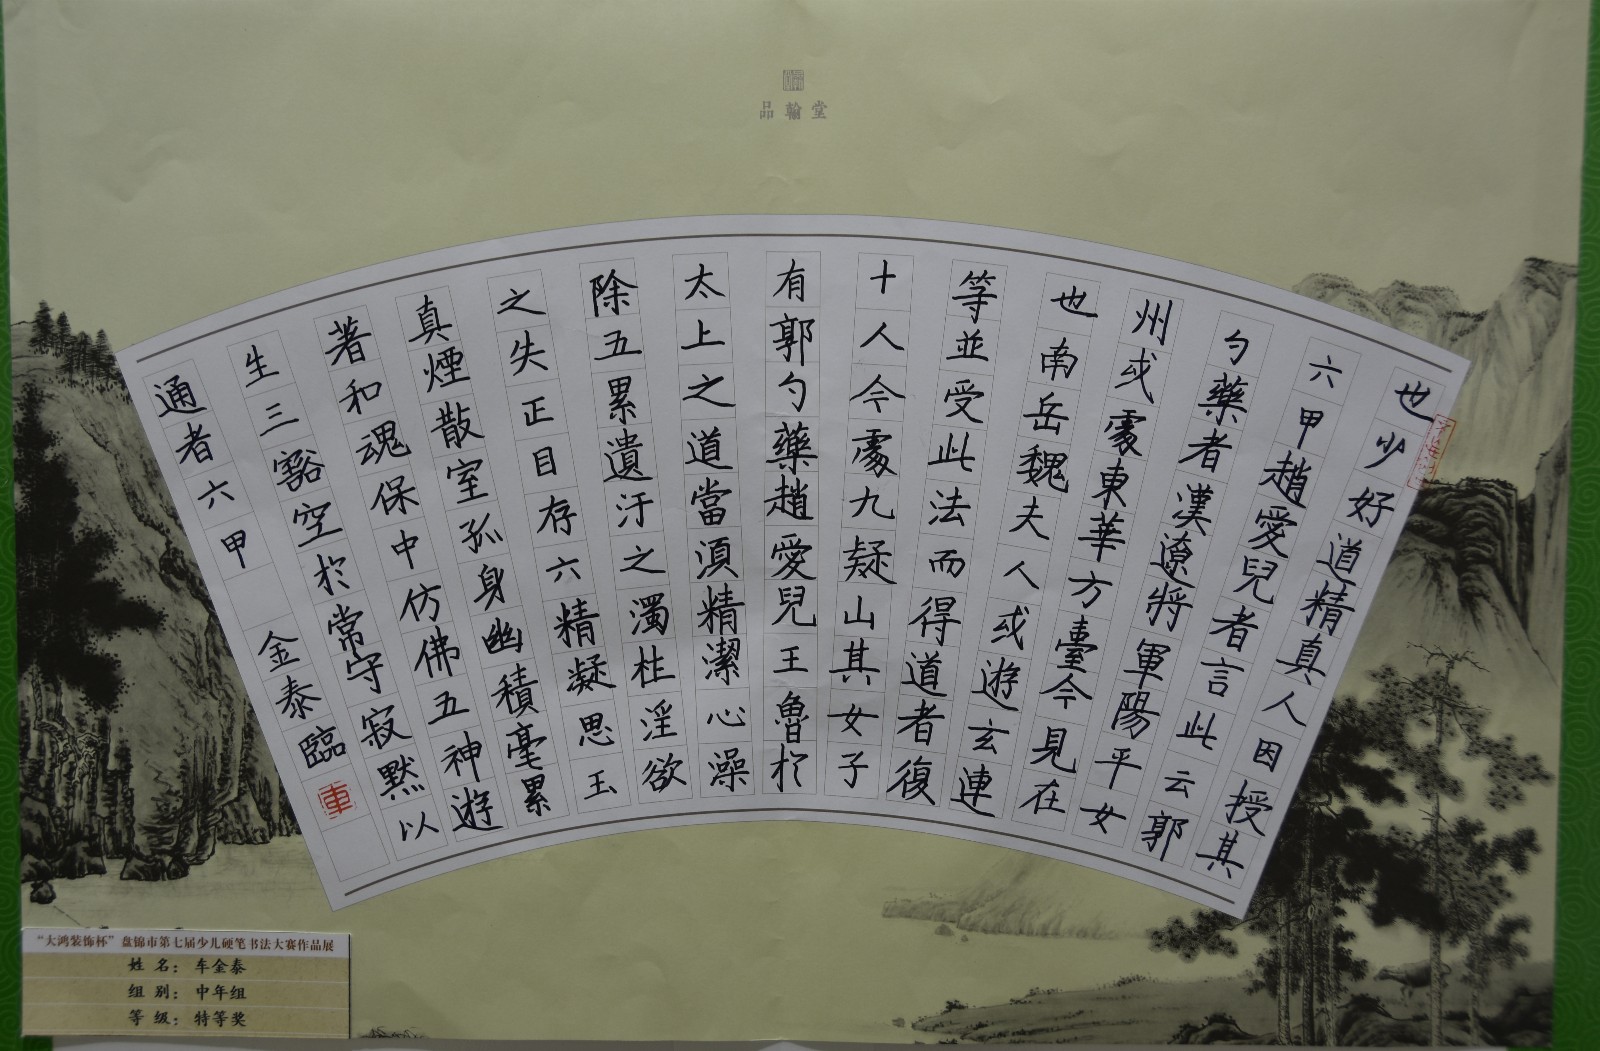 品翰堂
也少好道精真人因授其
六甲趙愛兒者言此云郭
勺藥者漢遼將軍陽平女
州或處東華方臺今見在
也南岳魏夫人或遊玄連
等並受此法而得道者復
十人今處九疑山其女子
有郭勺藥趙愛兒王魯於
太上之道當須精潔心澡
除五累遺汙之濁杜淫欲
之失正目存六精凝思玉
真煙散室孤身幽積毫累
著和魂保中仿佛五神遊
生三豁空於常守寂默以
通者六甲 金泰臨
車
“大鸿装饰杯”盘锦市第七届少儿硬笔书法大赛作品展
姓名：车金泰
组别：中年组
等级：特等奖